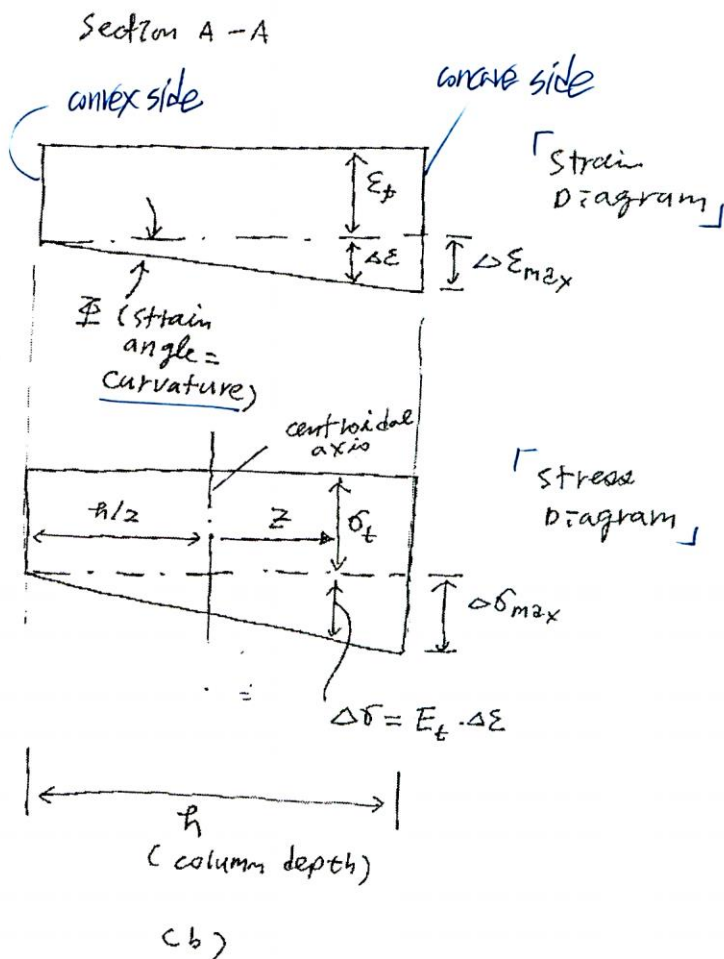 Section A-A
convex side
concave side
「Strain
Diagram」
ε_t
Δε
Δε_max
Φ (strain
angle =
curvature)
centroidal
axis
「Stress
Diagram」
h/2
Z
σ_t
Δσ_max
Δσ = E_t · Δε
h
(column depth)
(b)